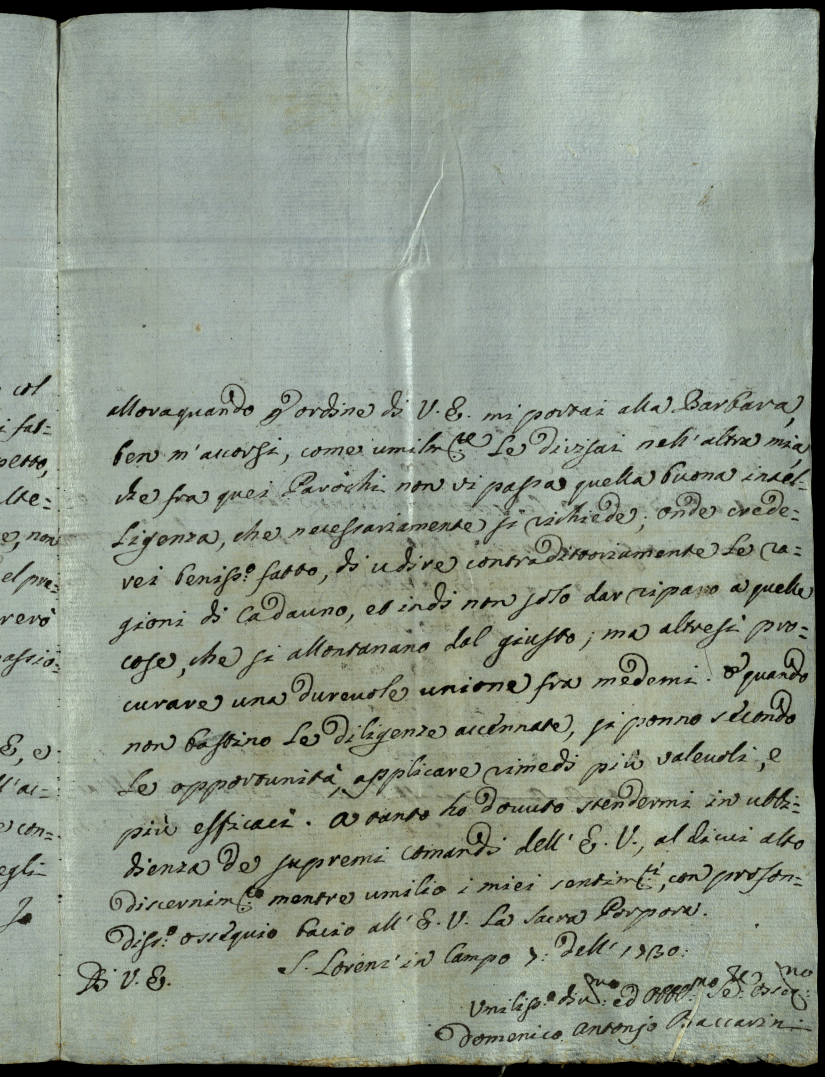 col
i fat=
petto,
lte=
e, non
el pre=
rerò
assio=
E, e
ll'ac=
e con=
egli
Io
alloraquando p ordine di V. E. mi portai alla Barbara,
ben m'accorsi, come umilm:te Le divisai nell'altra mia,
che fra quei Parochi non vi passa quella buona intel=
Ligenza, che necessariamente si richiede; onde crede=
rei beniss:o fatto, di udire contradittoriamente Le ra=
gioni di Cadauno, et indi non solo dar riparo a quelle
cose, che si allontanano dal giusto; ma altresì pro=
curare una durevole unione fra medemi. E quando
non bastino Le diligenze accennate, si ponno secondo
Le opportunità, applicare rimedi più valevoli, e
più efficaci. A tanto ho dovuto stendermi in ubbi=
dienza de supremi comandi dell' E. V., al di cui alto
discernim:to mentre umilio i miei sentim:ti, con profon=
diss:o ossequio bacio all' E. V. La Sacra Porpora.
S. Lorenz' in Campo 7: dell' 1730:
Di V. E.
Umiliss:o div:mo ed Obb:mo Se:re Osseq:mo
Domenico Antonjo Baccarini